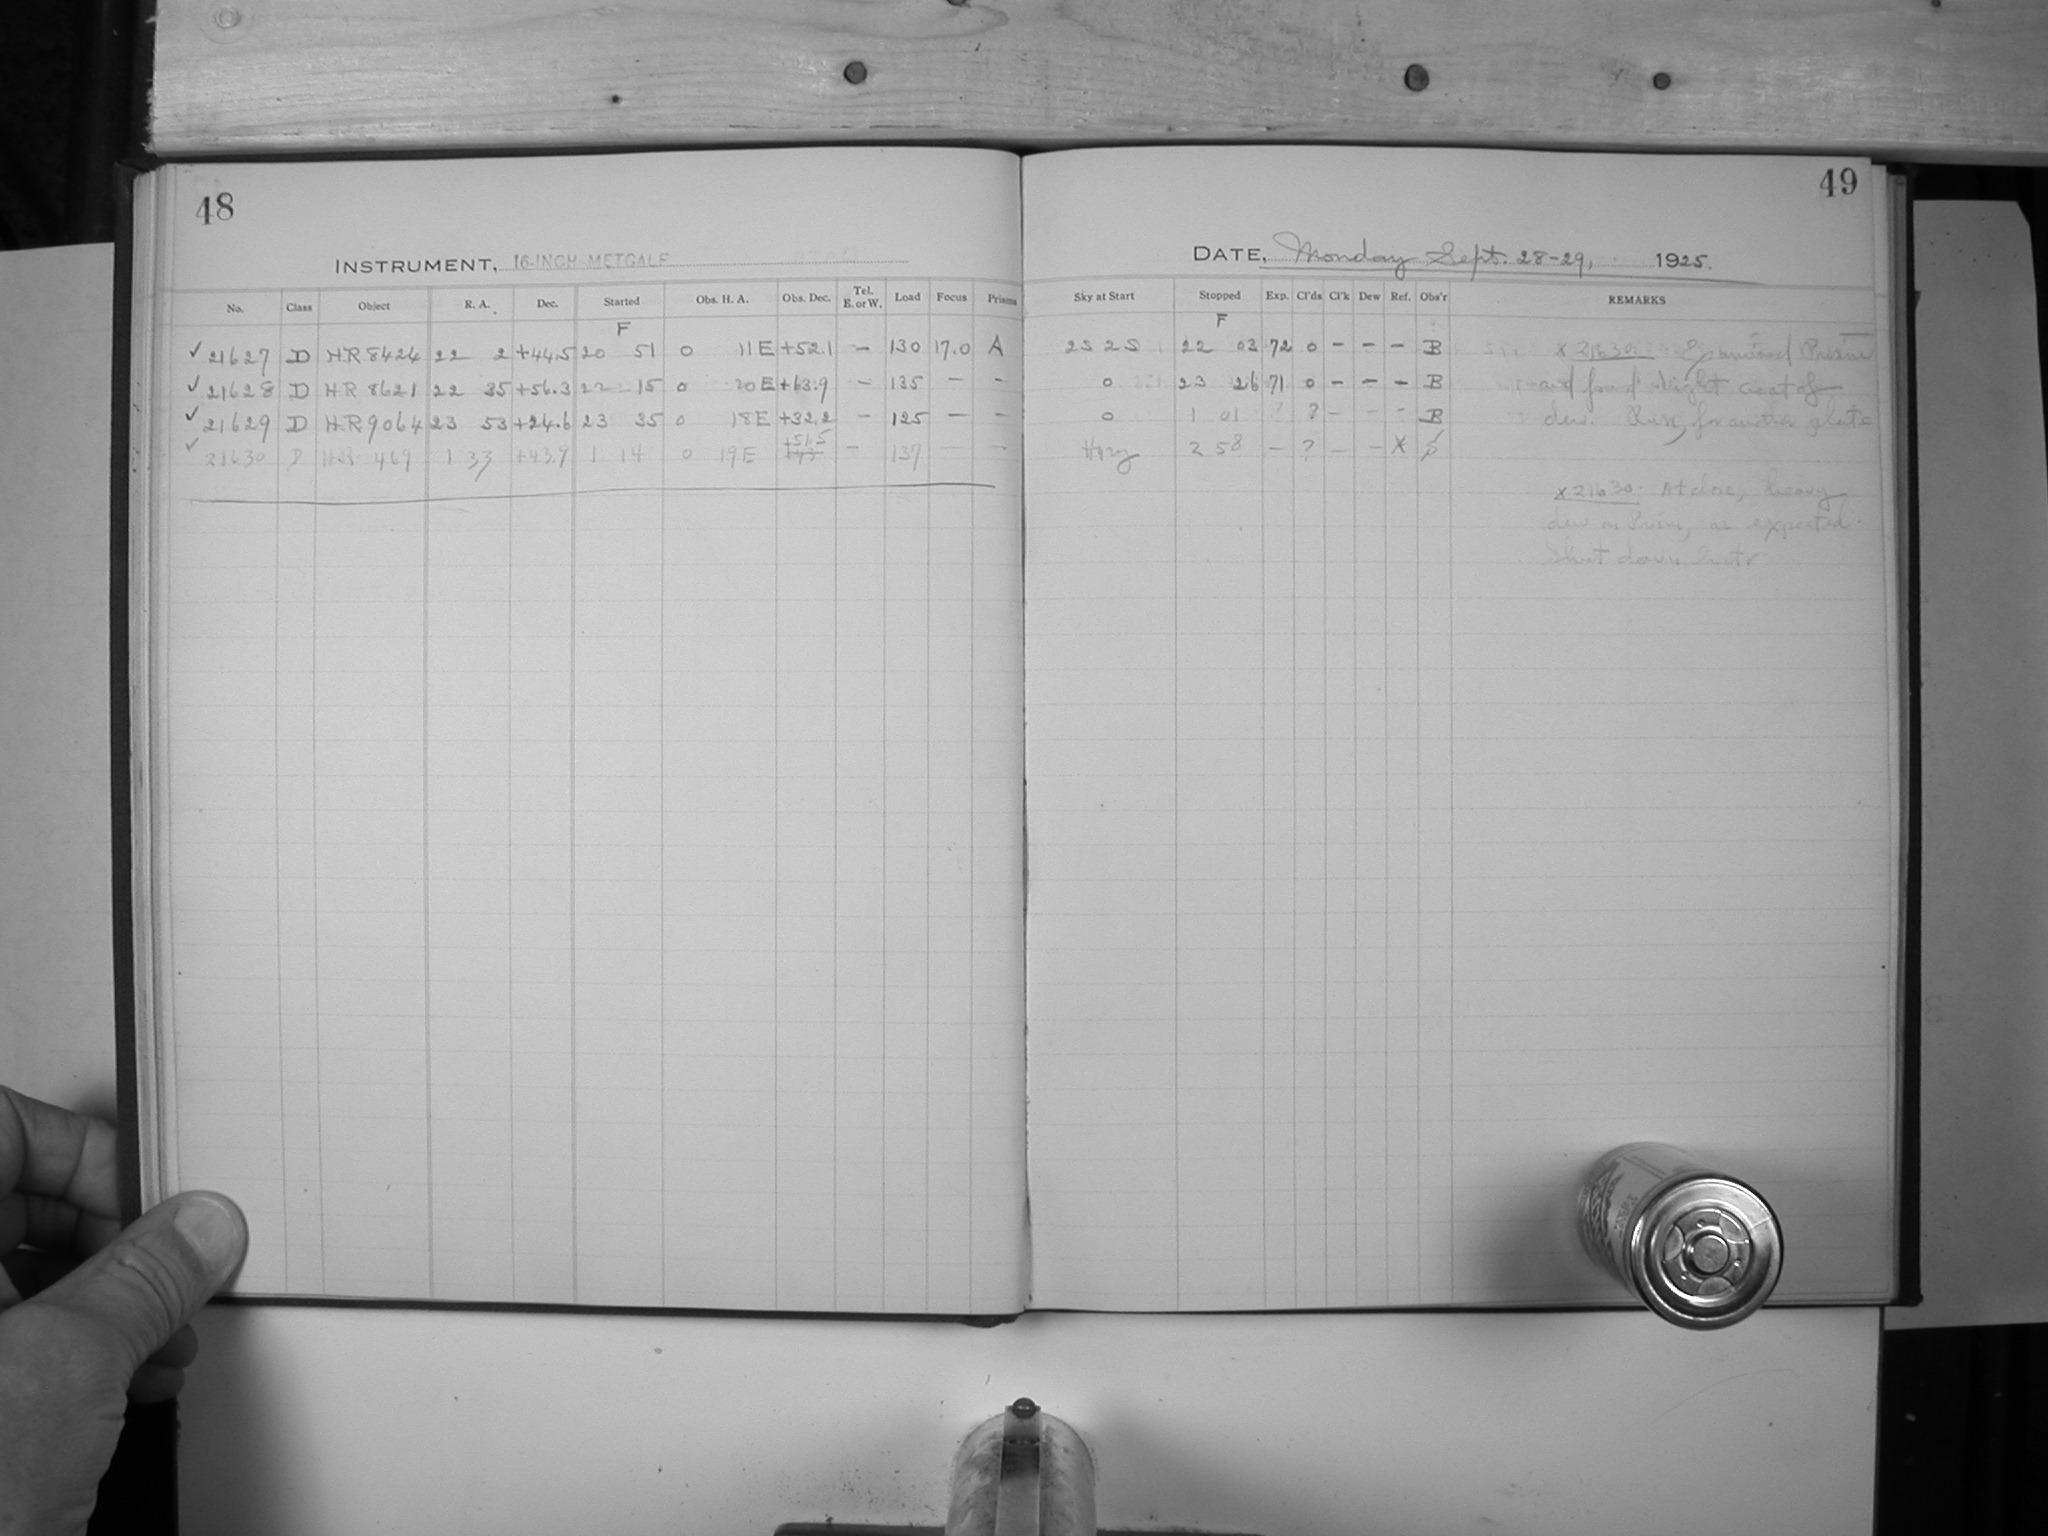 48
INSTRUMENT, 16-INCH METCALF
No. Class Object R. A. Dec. Started Obs. H. A. Obs. Dec. Tel. E. or W. Load Focus Prisms
F
✓ 21627 D H.R. 8424 22 2 +44.5 20 51 0 11 E +52.1 – 130 17.0 A
✓ 21628 D H.R. 8621 22 35 +56.3 22 15 0 20 E +63.9 – 135 – –
✓ 21629 D H.R. 9064 23 53 +24.6 23 35 0 18 E +32.2 – 125 – –
✓ 21630 D H.R. 469 1 33 +43.9 1 14 0 19 E +51.5 – 137 – –
49
DATE, Monday Sept. 28-29, 1925.
Sky at Start Stopped Exp. Cl'ds Cl'k Dew Ref. Obs'r REMARKS
F
2S 2S 22 03 72 0 – – – B x 21630: Examined Prism
0 23 26 71 0 – – – B and found slight coat of
0 1 01 ? – – – B dew. Risk for another plate
Hazy 2 58 – ? – – X B
x 21630: At close, heavy
dew on Prism, as expected.
Shut down Instr